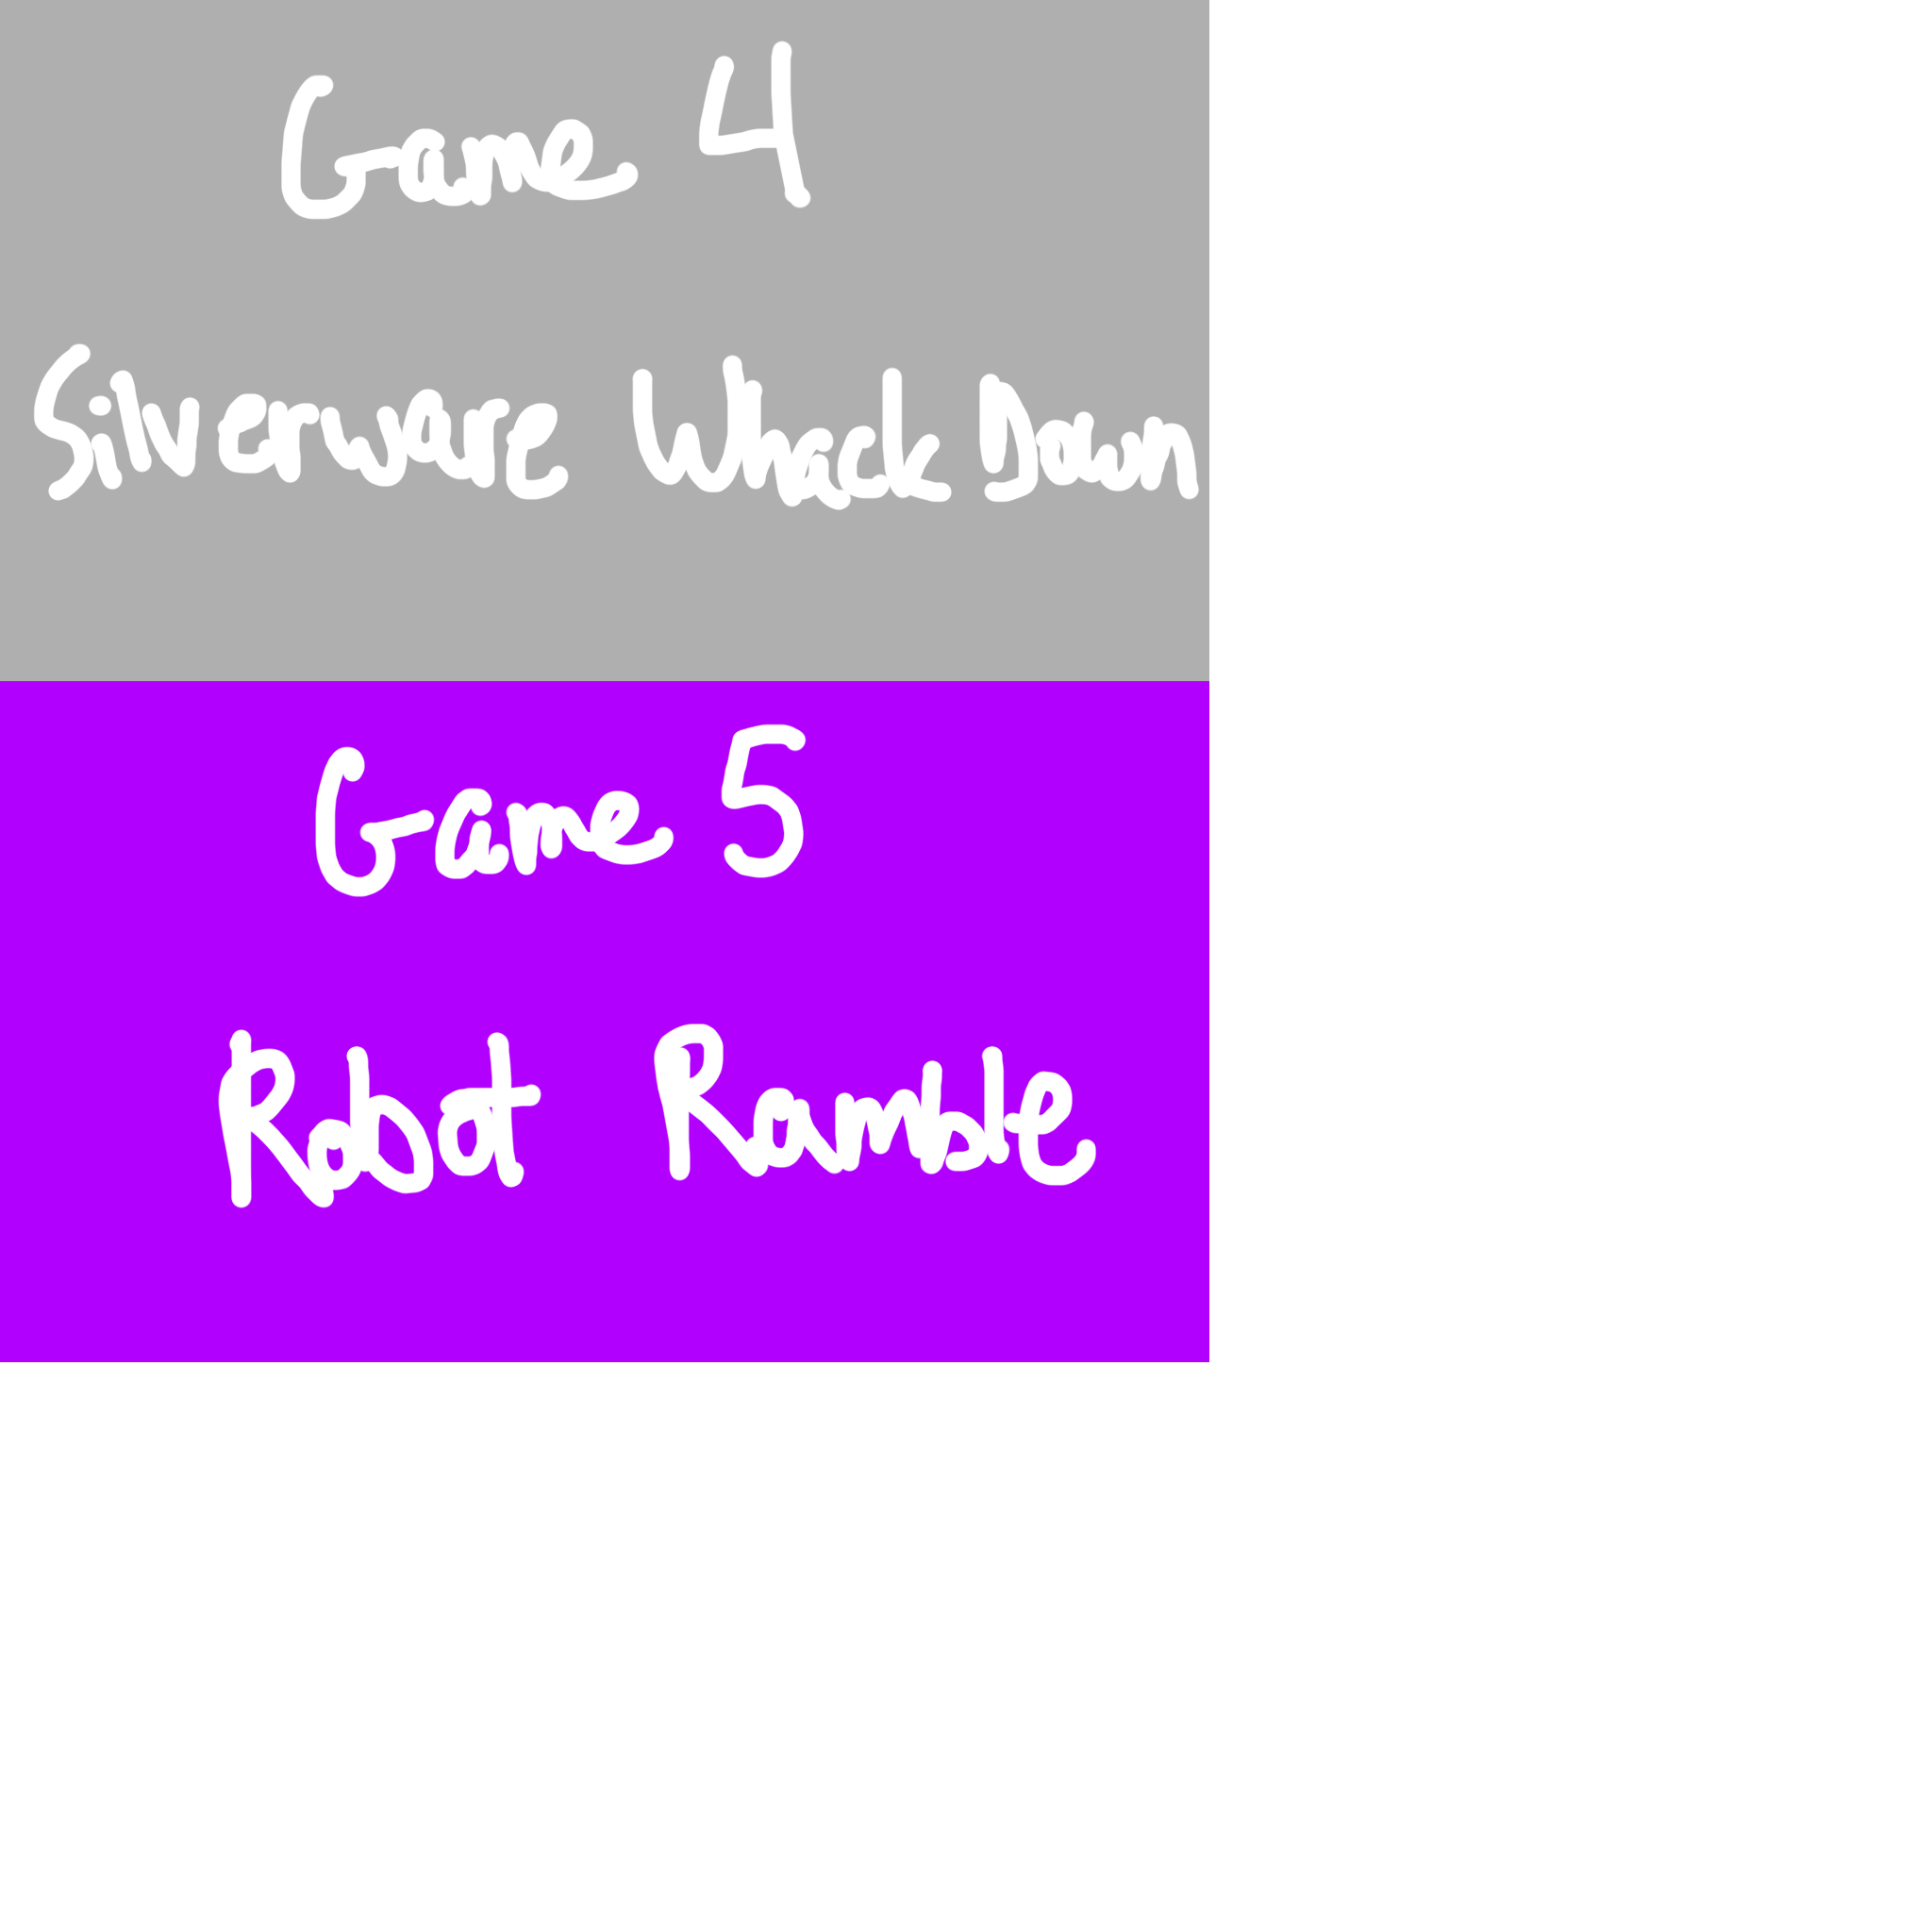 Game 4
Silverware Whack Down
Game 5
Robot Ramble